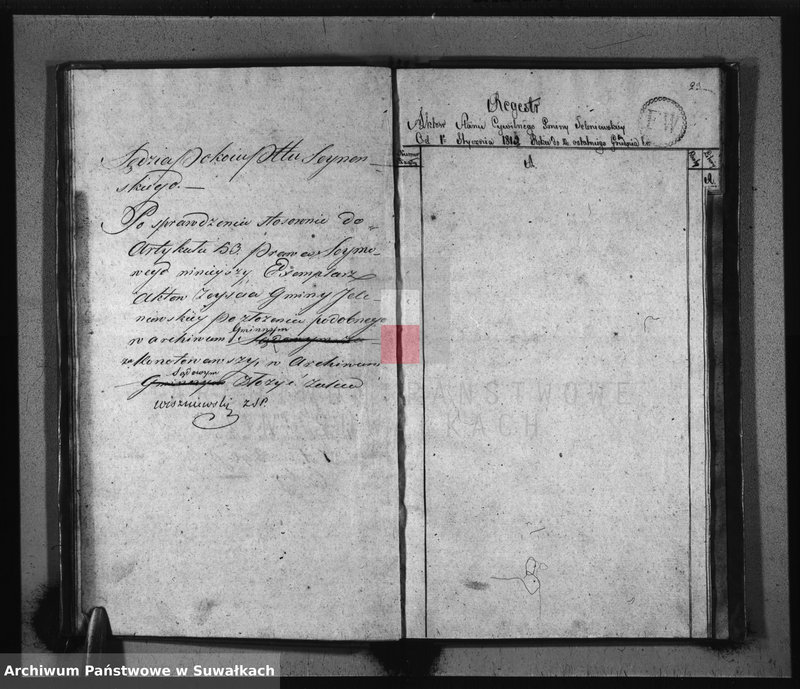 Sędzia Pokoju Pttu Seynen-
skiego. —
Po sprawdzeniu stosownie do
Artykułu 53 Prawa Seymo-
wego ninieyszy Exemplarz
Aktow Zeyścia Gminy Jele-
niewskiey po złożeniu podobnego
w archiwum Gminnym Sądowym
zakonotowawszy, w Archiwum
Sądowym Gminnym złożyć zaleca
Wiszniewski z SP.
23
Regestr
Aktow Stanu Cywilnego Gminy Jeleniewskiey
Od 1o Stycznia 1812 Roku do ostatniego Grudnia t. r.
FW
A
A
PAŃSTWOWE
KACH
Archiwum Państwowe w Suwałkach